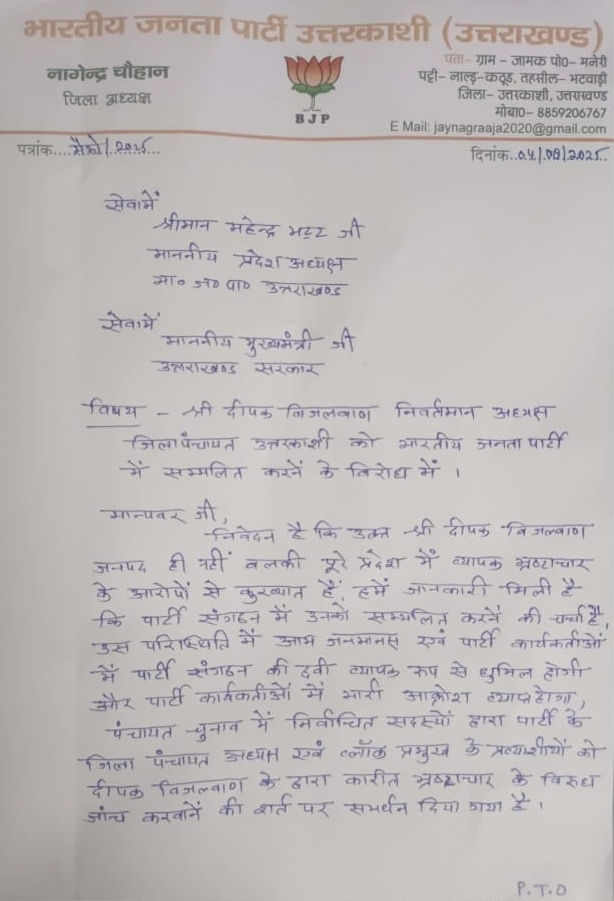 भारतीय जनता पार्टी उत्तरकाशी (उत्तराखण्ड)
नागेन्द्र चौहान
जिला अध्यक्ष
BJP
पता- ग्राम - जामक पो०- मनेरी
पट्टी- नाल्ड-कठूड, तहसील- भटवाड़ी
जिला- उत्तरकाशी, उत्तराखण्ड
मोबा0- 8859206767
E Mail: jaynagraaja2020@gmail.com
पत्रांक....मैमो/2025...
दिनांक..04/08/2025..
सेवामें
श्रीमान महेन्द्र भट्ट जी
माननीय प्रदेश अध्यक्ष
भा० ज० पा० उत्तराखण्ड
सेवामें
माननीय मुख्यमंत्री जी
उत्तराखण्ड सरकार
विषय - श्री दीपक बिजलवाण निवर्तमान अध्यक्ष
जिला पंचायत उत्तरकाशी को भारतीय जनता पार्टी
में सम्मलित करनें के विरोध में ।
मान्यवर जी,
निवेदन है कि उक्त श्री दीपक बिजल्वाण
जनपद ही नहीं बलकी पूरे प्रदेश में व्यापक भ्रष्टाचार
के आरोपों से कुख्यात हैं, हमें जानकारी मिली है
कि पार्टी संगठन में उनको सम्मलित करनें की चर्चा है,
उस परिस्थिति में आम जनमानस एवं पार्टी कार्यकर्ताओं
में पार्टी संगठन की छवी व्यापक रूप से धुमिल होगी
और पार्टी कार्यकर्ताओं में भारी आक्रोश व्याप्त होगा,
पंचायत चुनाव में निर्वाचित सदस्यों द्वारा पार्टी के
जिला पंचायत अध्यक्ष एवं ब्लॉक प्रमुख के प्रत्याशीयों को
दीपक बिजल्वाण के द्वारा कारीत भ्रष्टाचार के विरुध
जांच करवानें की शर्त पर समर्थन दिया गया है ।
P.T.O